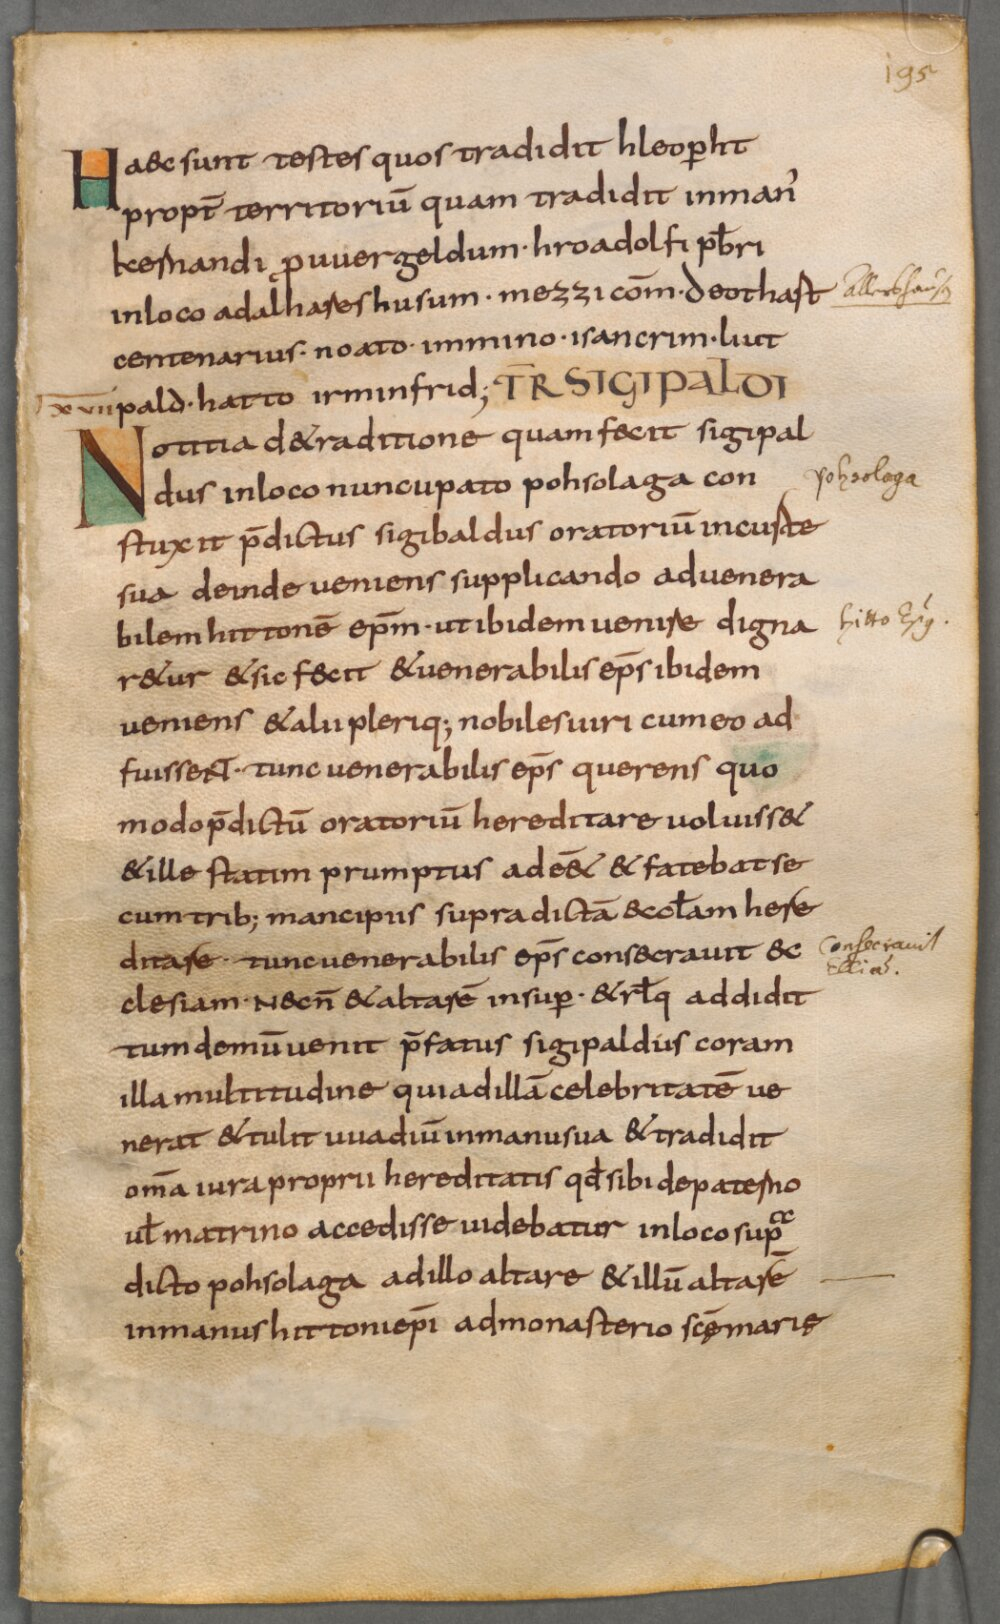 195
Haec sunt testes quos tradidit hleop̄ht
propt̄ territoriū quam tradidit inman̄
kernandi p̄ uuergeldum · hroadolfi pb̄ri
inloco adalhareshusum · mezzi cōm · deothart
centenarius · noato · immino · isancrim · liut
pald · hatto irminfrid; TR̄ SIGIPALDI
xvii
Notitia de&raditione quam fecit sigipal
dus inloco nuncupato pohsolaga con
pohsolaga
struxit p̄dictus sigibaldus oratoriū incurte
sua deinde ueniens supplicando aduenera
bilem hittonē ep̄m · ut ibidem uenire digna
hitto Ep̄s.
r&ur & sic fecit & uenerabilis ep̄s ibidem
ueniens & alii pleriq; nobiles uiri cum eo ad
fuissent · tunc uenerabilis ep̄s querens quo
modo p̄dictū oratoriū hereditare uoluiss&
& ille statim prumptus adē& & fatebat se
cum trib; mancipiis supradictā & cot̄am here
ditare · tunc uenerabilis ep̄s consecrauit ec
consecrauit
Ecclīā.
clesiam · necn̄ & altarē insup̄ · & rl̄q addidit
tum demū uenit p̄fatus sigipaldus coram
illa multitudine qui adillā celebritatē ue
nerat & tulit uuadiū inmanu sua & tradidit
om̄a iura proprii hereditatis qd̄ sibi depaterno
ul̄ matrino accedisse uidebatur inloco sup̄
dicto pohsolaga adillo altare & illū altarē
inmanus hittoni ep̄i admonasterio sc̄ę marię